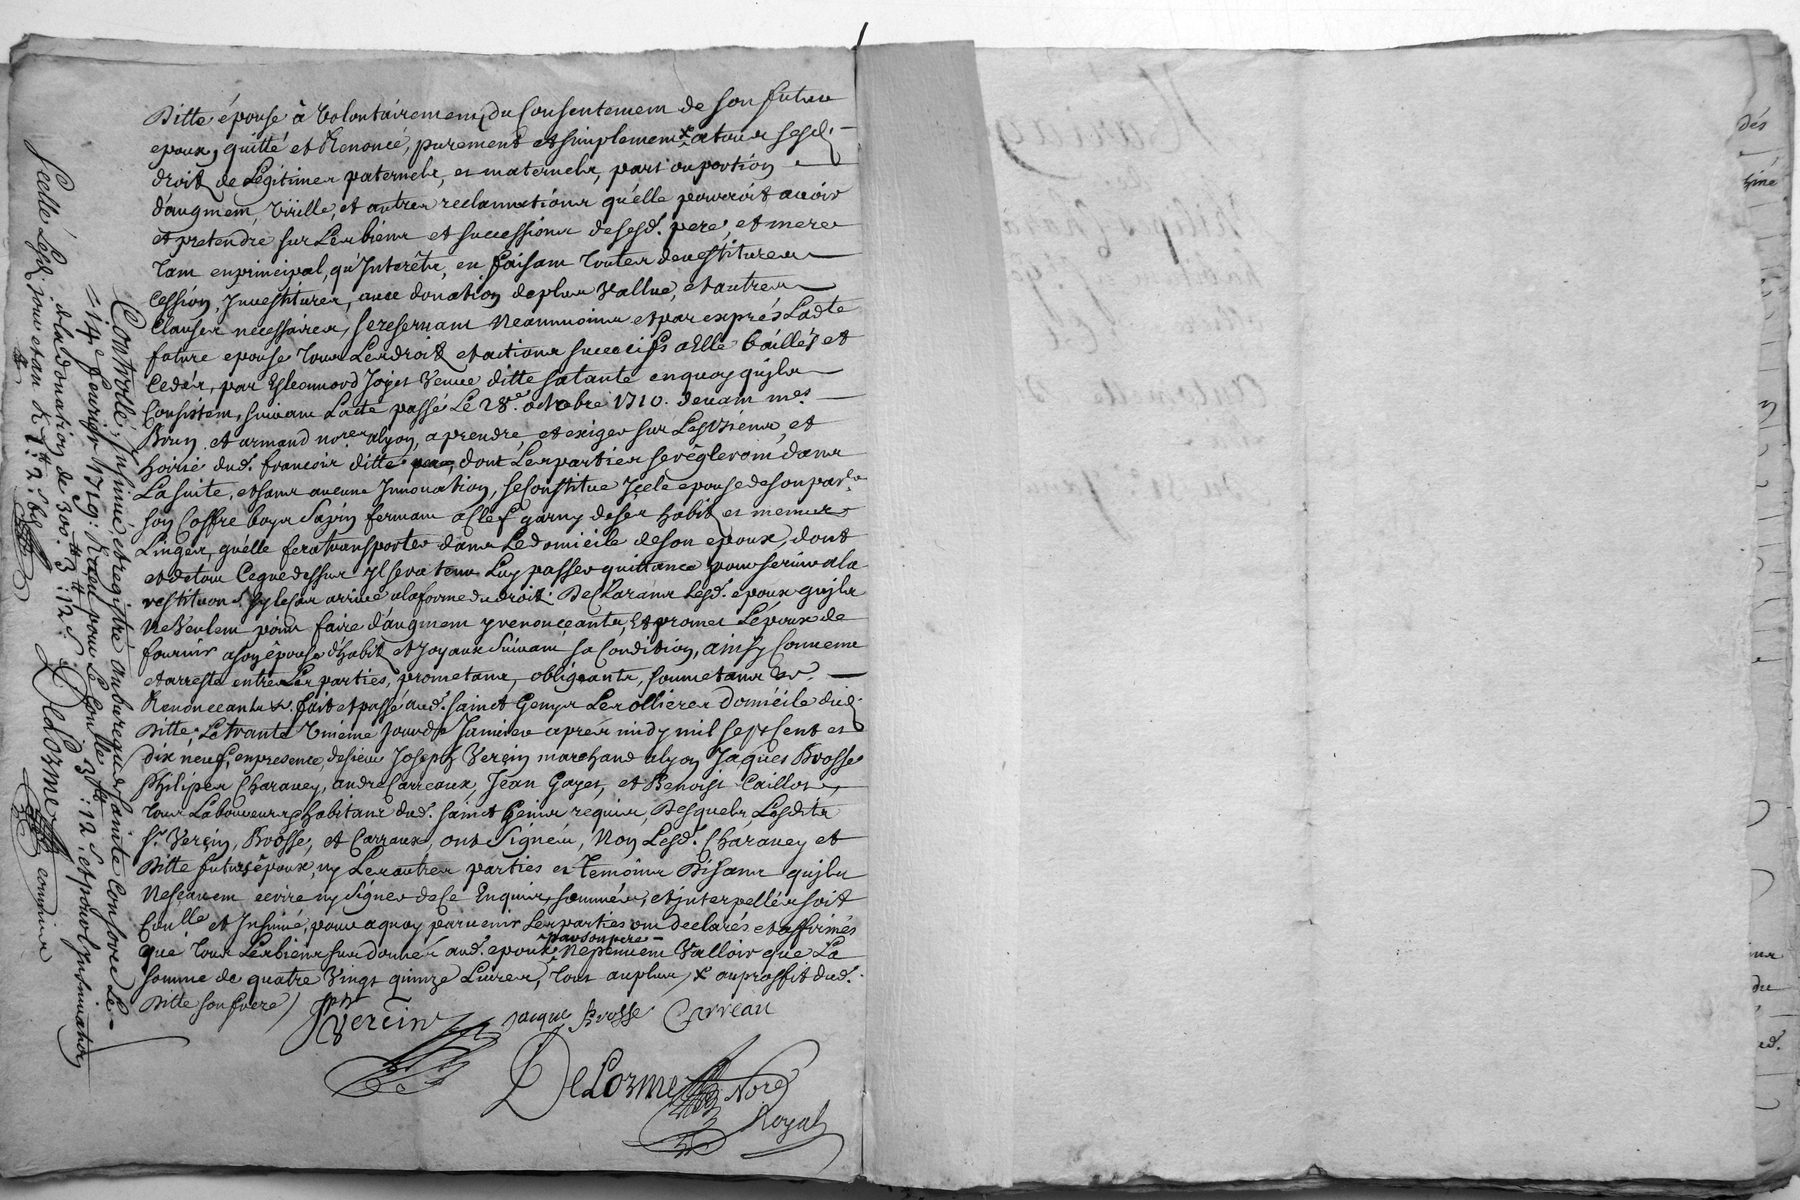 Ditte épouse à volontairement du Consentement de son futur
epoux, quitté et Renoncé, purement et simplement x a tous sesd.
droits de Legitimes paternels, et maternels, part ou portion
d'augment, et autres reclamations qu'elle pourroit avoir
et pretendre sur Les biens et successions de sesd. pere, et mere
Tant en principal, qu'Interêts, en faisant Toutes devestitures
Cession, Investitures, avec donation de plus Vallue, et autres
Clauses necessaires, se reservant Neanmoins et par exprés Ladte
future epouse Tous Les droits et actions successifs a Elle baillés et
Cedés, par Joyet Veuve ditte sa tante en quoy qu'ils
Consistent, suivant L'acte passé Le 28e. octobre 1710. devant mes
Brun et armand nores a lyon, a prendre, et exiger sur Les biens, et
hoirie dud. francois ditte dont Les parties se regleront dans
La suite, et sans aucune Innovation, se Constitue Icele epouse de son
son Coffre boys Sapin fermant a Clef garny de ses habits et menus
Linges, qu'elle fera transporter dans Le domicile de son epoux, dont
et de tout Ce que dessus Il sera tenu Luy passer quittance pour servir a la
restitution sy le cas arrive a la forme du droit. Declarants Lesd. epoux qu'ils
Ne Veulent point faire d'augment y renonceants, Et promet L'époux de
fournir a son épouse d'habits et Joyaux Suivant sa Condition, ainsy Convenu
et arresté entre Les parties, prometant, obligeants, soumetants &c.
Renonceants &c. fait et passé aud. sainct Genys Les ollieres domicile dud.
Ditte, Le trante Unieme Jour de Janvier aprés midy mil sept Cent et
dix neuf, en presence, de sieur Joseph Verçin marchand a lyon Jaques Brosse
Philipes Charavey, andré Carreaux, Jean Gayet, et Benoist Caillot,
Tous Laboureurs habitans dud. sainct Genis requis, Desquels, Lesdits
Sr. Verçin, Brosse, et Carreaux, ont Signéz, Non Lesd. Charavey et
Ditte futurs époux, ny Les autres parties et Temoins Disants qu'ils
Ne sçavent ecrire ny signer de Ce Enquis, sommés, et interpellés soit
Conllé et Insinué, pour a quoy parvenir Les parties ont declarés et affirmés
par son pere
que Tous Les biens sus donnés aud. epoux Ne peuvent Valloir que La
somme de quatre Vingt quinze Livres, Tout au plus, x au proffit dud.
Ditte son frere
Jph Verçin Jacque Brosse Carreau
DeLorme Nore
Royal
Controllé, Insinué, et registré au bureau de sainte Consorce Le
14e fevrier 1719: Receu pour Le Conlle 3tt : 12 s et pour l'insinuation
de la donation de 30s. tt 3 : 12 s
Scellé Led. jour et an R. 1tt : 2 s 6d
DeLorme commis